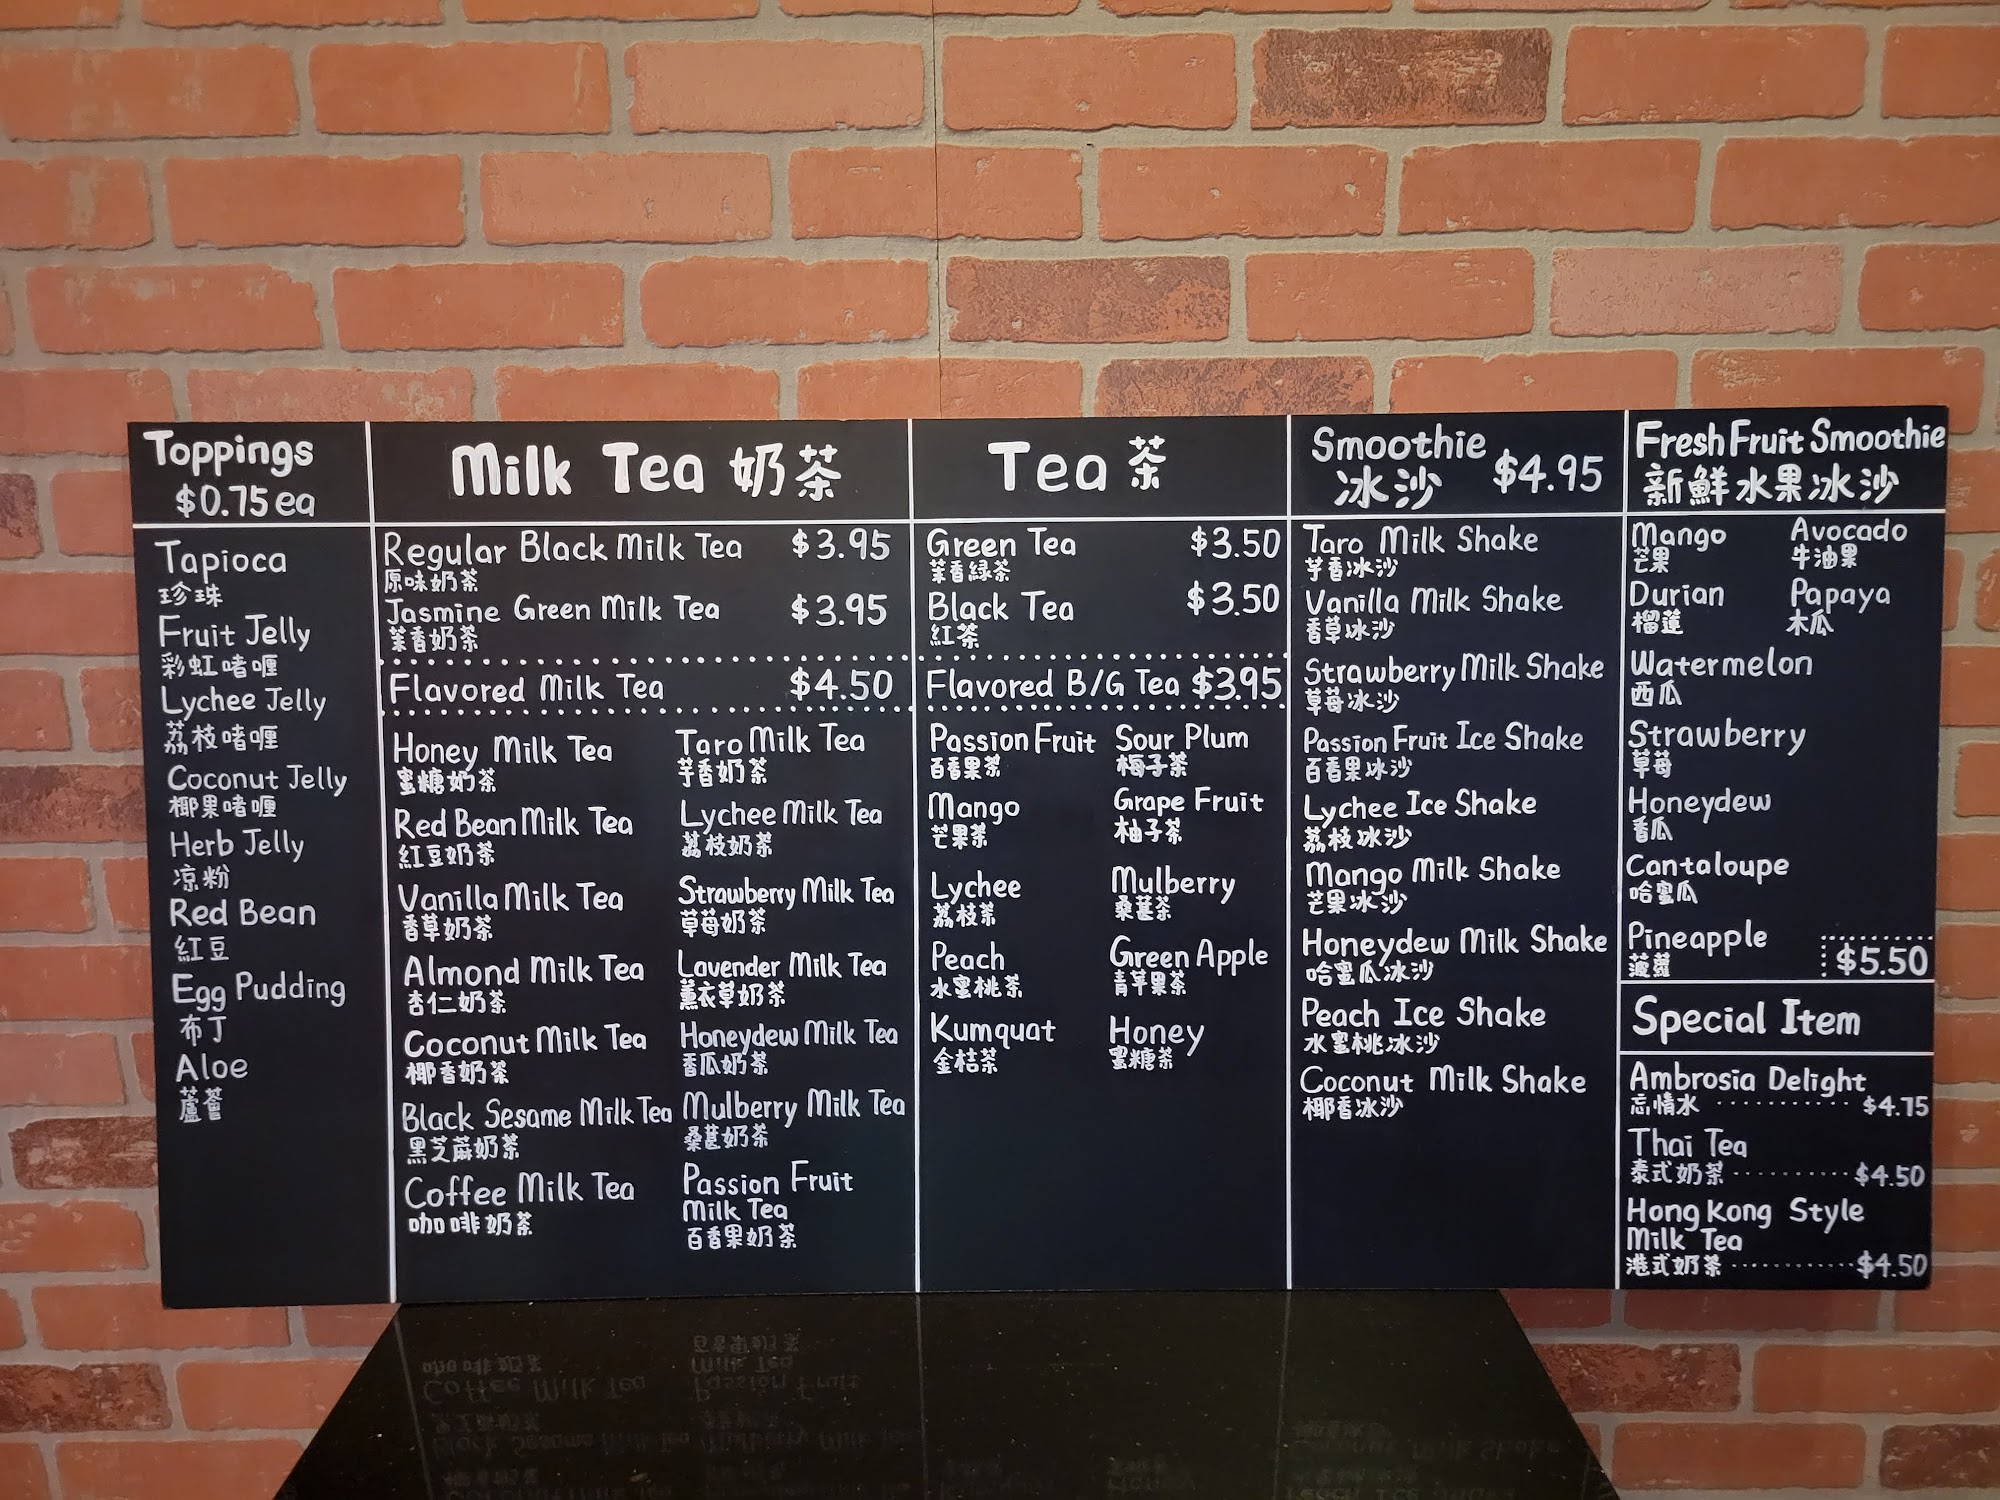 Toppings
$0.75 ea
Tapioca
珍珠
Fruit Jelly
彩虹啫喱
Lychee Jelly
荔枝啫喱
Coconut Jelly
椰果啫喱
Herb Jelly
凉粉
Red Bean
紅豆
Egg Pudding
布丁
Aloe
蘆薈
Milk Tea 奶茶
Regular Black Milk Tea $3.95
原味奶茶
Jasmine Green Milk Tea $3.95
茉香奶茶
Flavored Milk Tea $4.50
Honey Milk Tea
蜜糖奶茶
Red Bean Milk Tea
紅豆奶茶
Vanilla Milk Tea
香草奶茶
Almond Milk Tea
杏仁奶茶
Coconut Milk Tea
椰香奶茶
Black Sesame Milk Tea
黑芝蔴奶茶
Coffee Milk Tea
咖啡奶茶
Taro Milk Tea
芋香奶茶
Lychee Milk Tea
荔枝奶茶
Strawberry Milk Tea
草莓奶茶
Lavender Milk Tea
薰衣草奶茶
Honeydew Milk Tea
香瓜奶茶
Mulberry Milk Tea
桑葚奶茶
Passion Fruit
Milk Tea
百香果奶茶
Tea 茶
Green Tea $3.50
茉香緑茶
Black Tea $3.50
紅茶
Flavored B/G Tea $3.95
Passion Fruit
百香果茶
Mango
芒果茶
Lychee
荔枝茶
Peach
水蜜桃茶
Kumquat
金桔茶
Sour Plum
梅子茶
Grape Fruit
柚子茶
Mulberry
桑葚茶
Green Apple
青苹果茶
Honey
蜜糖茶
Smoothie
冰沙 $4.95
Taro Milk Shake
芋香冰沙
Vanilla Milk Shake
香草冰沙
Strawberry Milk Shake
草莓冰沙
Passion Fruit Ice Shake
百香果冰沙
Lychee Ice Shake
荔枝冰沙
Mango Milk Shake
芒果冰沙
Honeydew Milk Shake
哈蜜瓜冰沙
Peach Ice Shake
水蜜桃冰沙
Coconut Milk Shake
椰香冰沙
Fresh Fruit Smoothie
新鮮水果冰沙
Mango
芒果
Avocado
牛油果
Durian
榴蓮
Papaya
木瓜
Watermelon
西瓜
Strawberry
草莓
Honeydew
香瓜
Cantaloupe
哈蜜瓜
Pineapple
菠蘿
$5.50
Special Item
Ambrosia Delight
忘情水 ············ $4.75
Thai Tea
泰式奶茶 ············ $4.50
Hong Kong Style
Milk Tea
港式奶茶 ············ $4.50